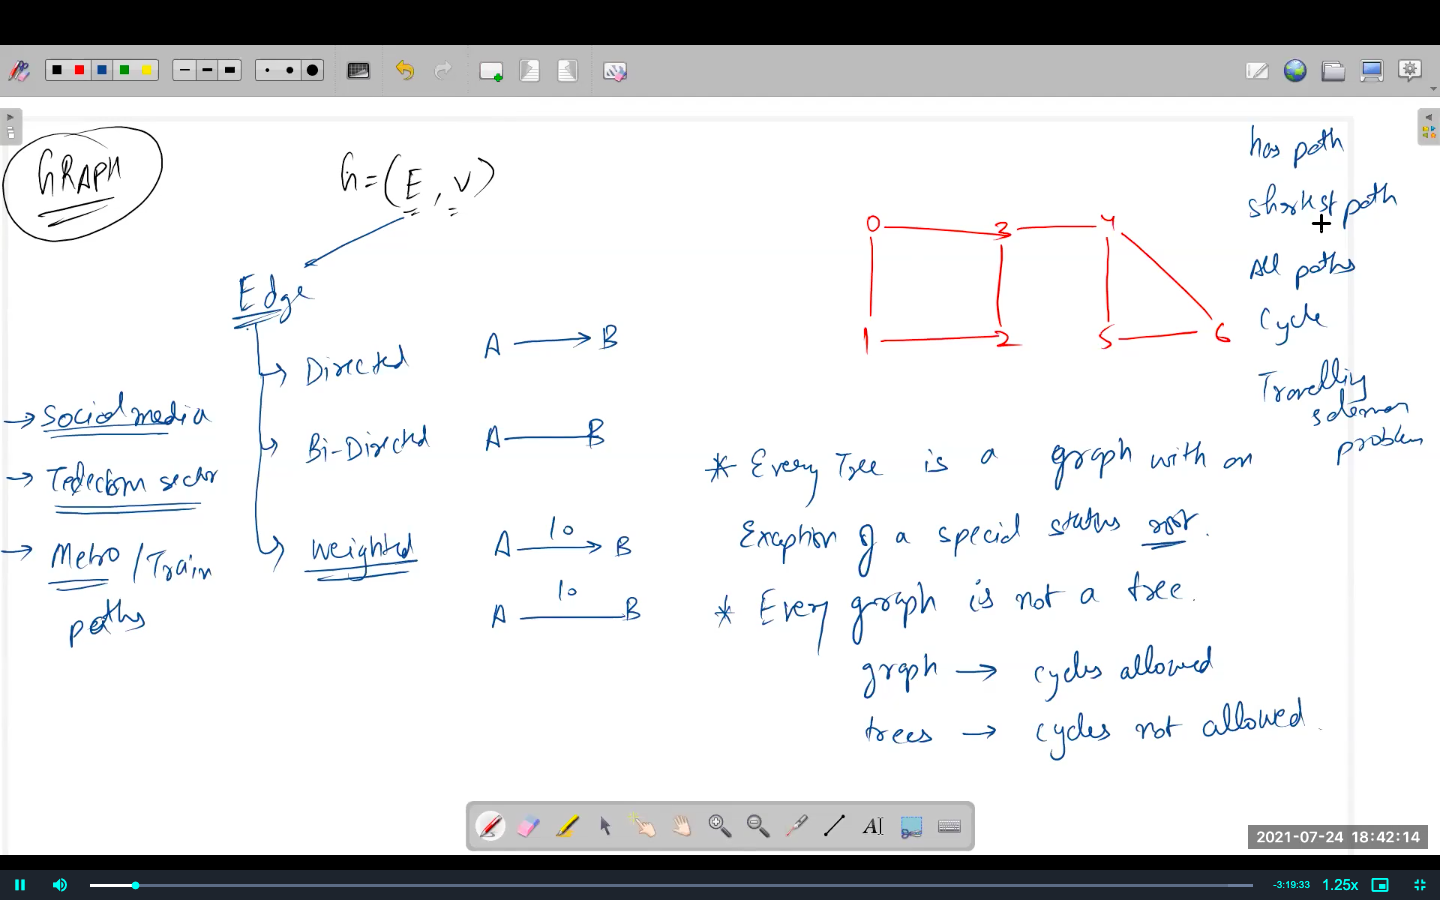 GRAPH
G = (E, V)
Edge
Directed
A → B
Bi-Directed
A B
Weighted
A 10 → B
A 10 B
→ Social media
→ Telecom sector
→ Metro / Train
paths
0 3 4
1 2 5 6
has path
shortest path
All paths
Cycle
Travelling
salesman
problem
* Every Tree is a graph with an
Exception of a special status root.
* Every graph is not a tree.
graph → cycles allowed
trees → cycles not allowed.
2021-07-24 18:42:14
-3:19:33 1.25x